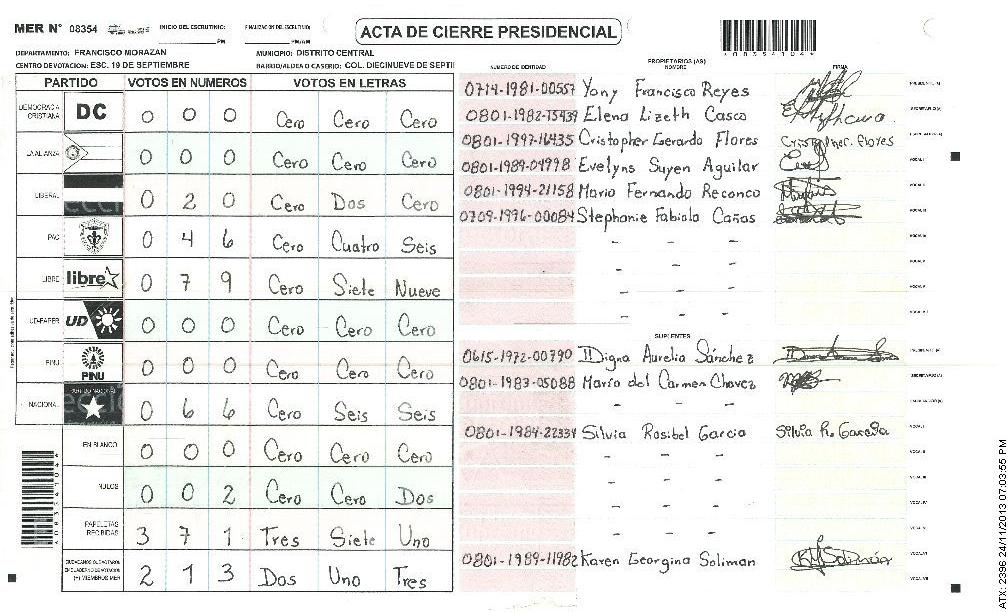 MER N° 08354 INICIO DEL ESCRUTINIO: PM FINALIZACION DEL ESCRUTINIO: PM/AM
ACTA DE CIERRE PRESIDENCIAL
DEPARTAMENTO: FRANCISCO MORAZAN MUNICIPIO: DISTRITO CENTRAL
CENTRO DE VOTACION: ESC. 19 DE SEPTIEMBRE BARRIO/ALDEA O CASERIO: COL. DIECINUEVE DE SEPTI
PARTIDO VOTOS EN NUMEROS VOTOS EN LETRAS
DEMOCRACIA CRISTIANA DC 0 0 0 Cero Cero Cero
LA ALIANZA 0 0 0 Cero Cero Cero
LIBERAL 0 2 0 Cero Dos Cero
PAC 0 4 6 Cero Cuatro Seis
LIBRE libre 0 7 9 Cero Siete Nueve
UD-FAPER UD 0 0 0 Cero Cero Cero
PINU PINU 0 0 0 Cero Cero Cero
NACIONAL 0 6 6 Cero Seis Seis
EN BLANCO 0 0 0 Cero Cero Cero
NULOS 0 0 2 Cero Cero Dos
PAPELETAS RECIBIDAS 3 7 1 Tres Siete Uno
2 1 3 Dos Uno Tres
NUMERO DE IDENTIDAD PROPIETARIOS (AS) NOMBRE FIRMA
0714-1981-00557 Yony Francisco Reyes PRESIDENTE (A)
0801-1982-15439 Elena Lizeth Casco SECRETARIO (A)
0801-1997-16435 Cristopher Gerardo Flores Cristopher. Flores
0801-1989-04998 Evelyns Suyen Aguilar VOCAL I
0801-1994-21158 Mario Fernando Reconco VOCAL II
0709-1996-00084 Stephanie Fabiola Cañas VOCAL III
- - -
- - -
- - -
- - -
SUPLENTES
0615-1972-00790 Digna Aurelia Sánchez PRESIDENTE (A)
0801-1983-05088 Mario del Carmen Chavez SECRETARIO (A)
0801-1984-22334 Silvia Rosibel Garcia Silvia R. Garcia VOCAL I
- - -
- - -
- - -
- - -
0801-1989-11982 Karen Georgina Soliman
ATX: 2396 24/11/2013 07:03:55 PM